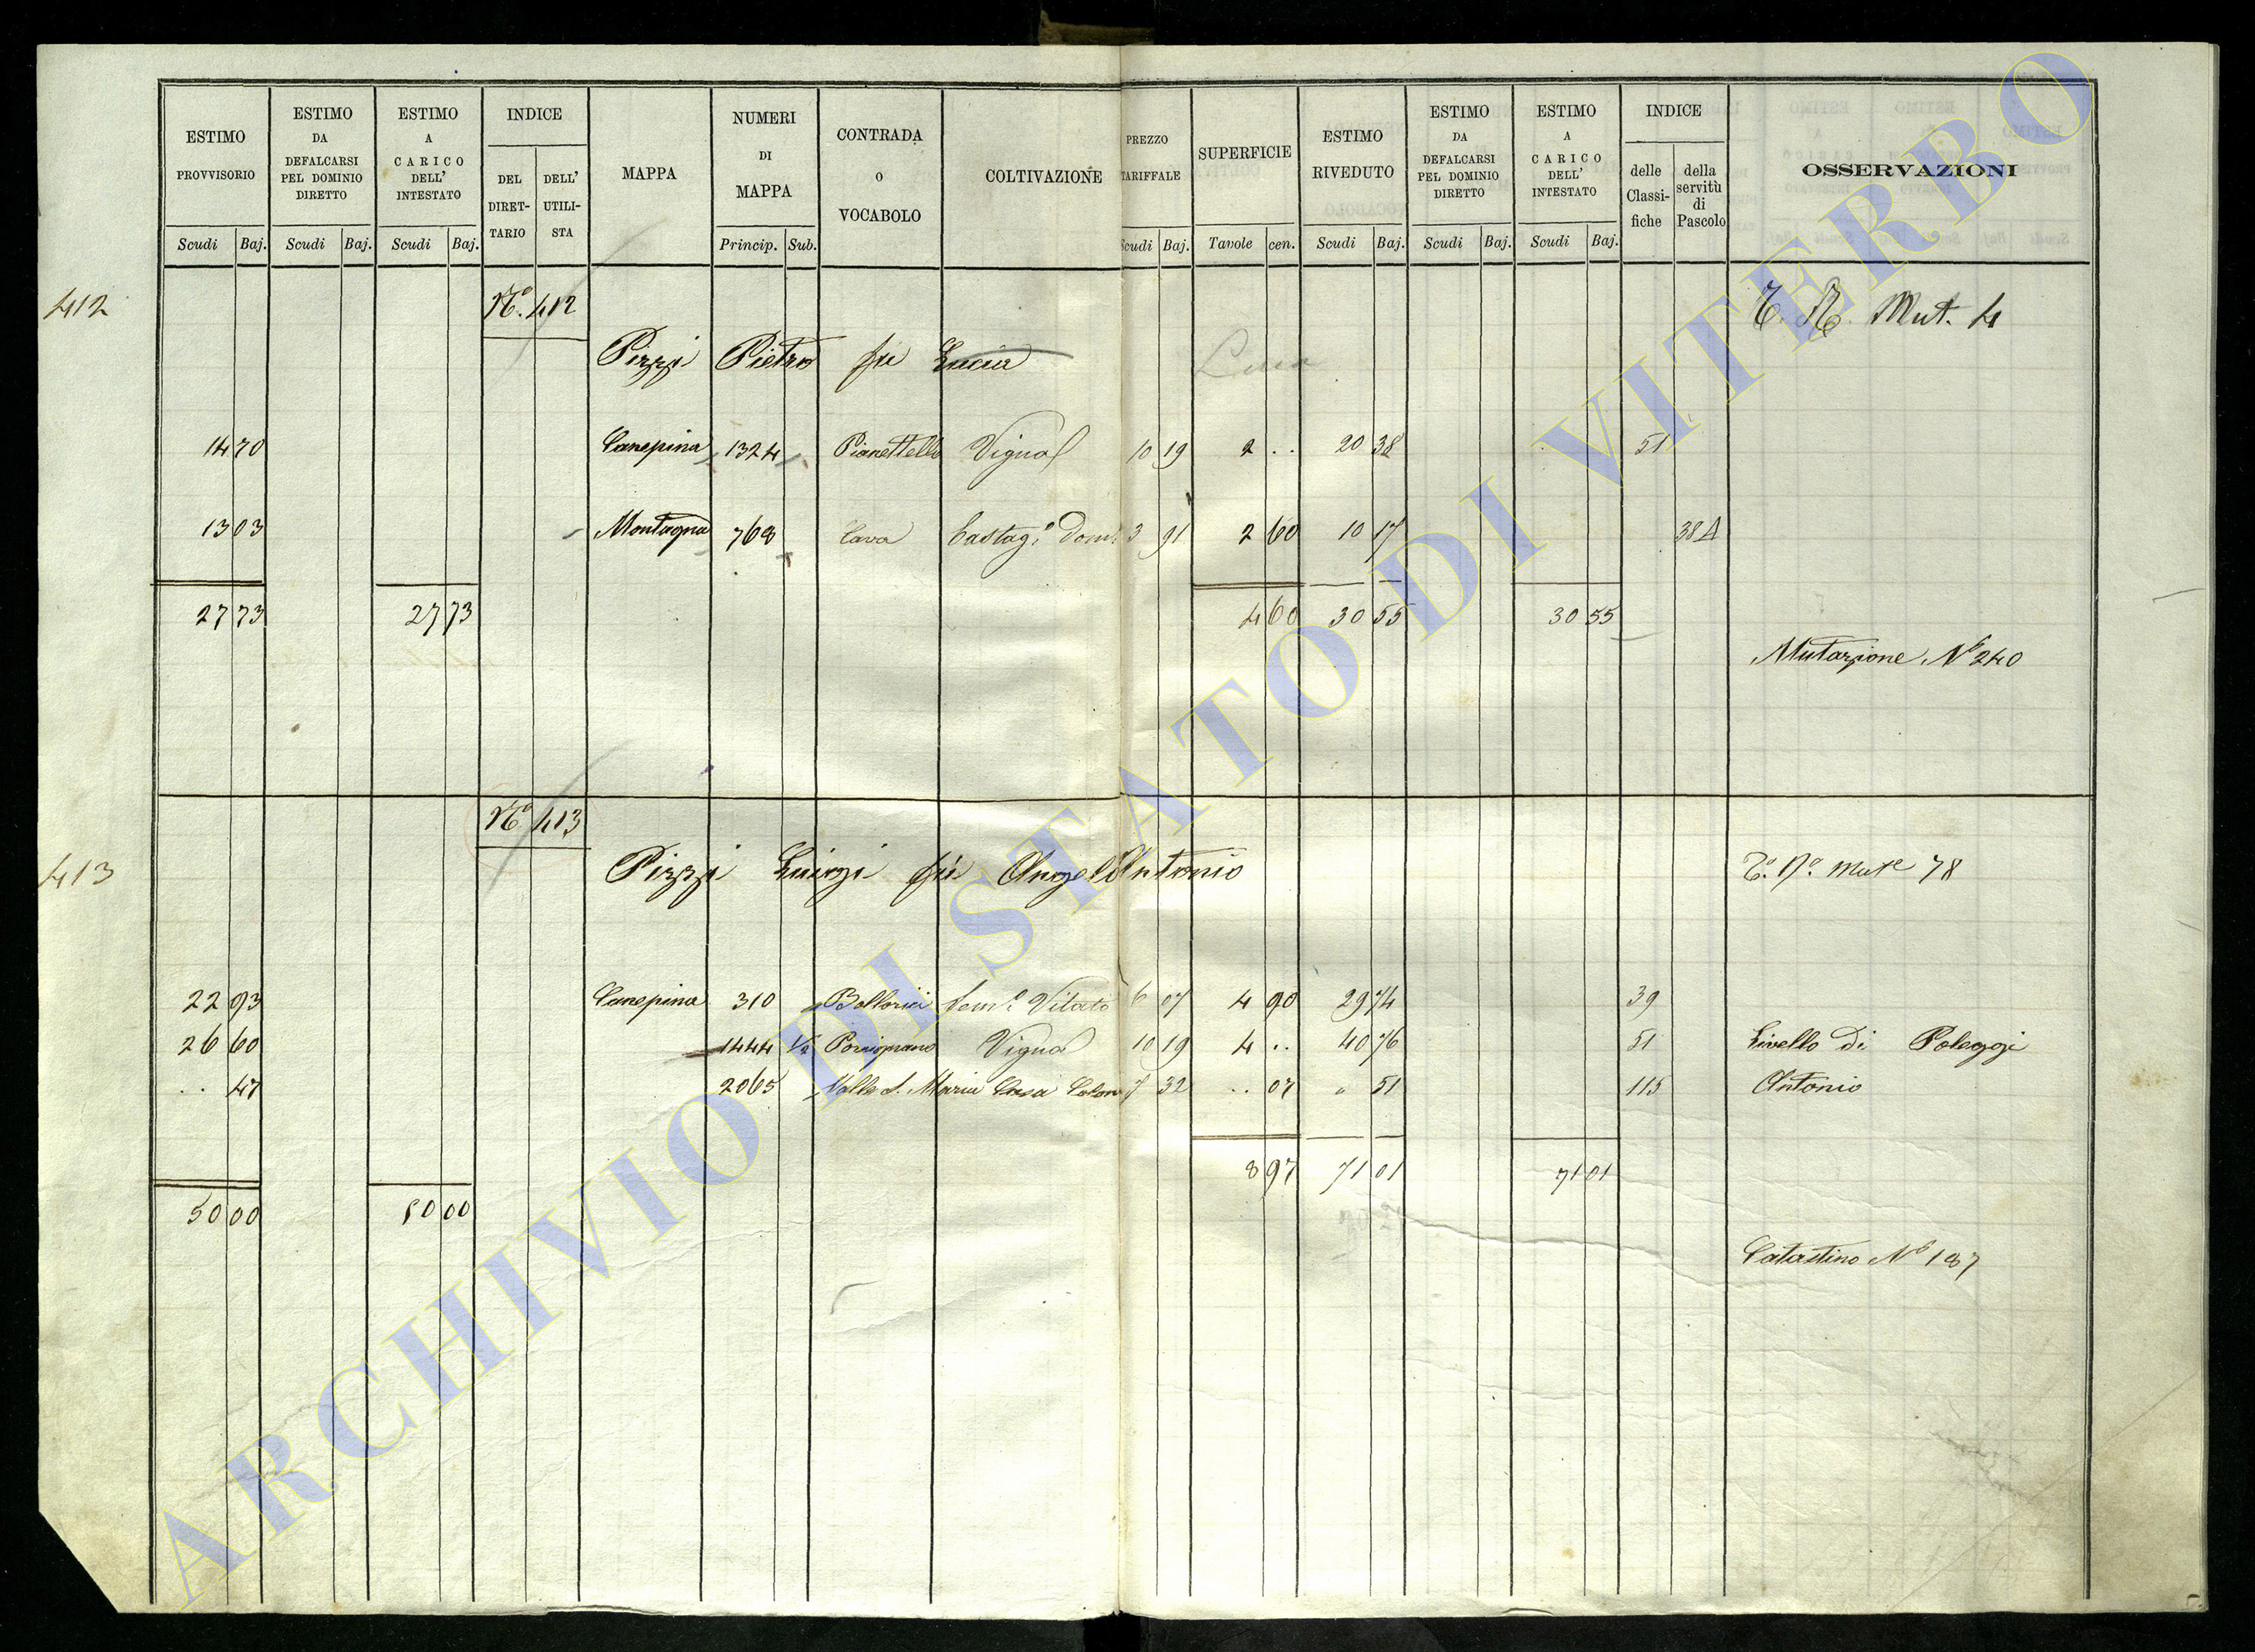 ESTIMO PROVVISORIO
ESTIMO DA DEFALCARSI PEL DOMINIO DIRETTO
ESTIMO A CARICO DELL' INTESTATO
INDICE
DEL DIRET-TARIO
DELL' UTILI-STA
MAPPA
NUMERI DI MAPPA
CONTRADA O VOCABOLO
COLTIVAZIONE
PREZZO TARIFFALE
SUPERFICIE
ESTIMO RIVEDUTO
ESTIMO DA DEFALCARSI PEL DOMINIO DIRETTO
ESTIMO A CARICO DELL' INTESTATO
INDICE
delle Classi-fiche
della servitù di Pascolo
OSSERVAZIONI
Scudi Baj. Scudi Baj. Scudi Baj. Princip. Sub. Scudi Baj. Tavole cen. Scudi Baj. Scudi Baj. Scudi Baj.
412 N.º 412 Mut. 4
Pizzi Pietro fu Lucia
14 70 Canepina 1324 Pianettello Vigna 10 19 2 . . 20 38 51
13 03 Montagna 768 Cava Castag.º Dom. 3 91 2 60 10 17 38 A
27 73 27 73 4 60 30 55 30 55
Mutazione Nº 240
Nº 413
413 Pizzi Luigi fu Angel'Antonio 78
22 93 Canepina 310 Sem.º Vitato 6 07 4 90 29 74 39
26 60 1444 1/2 Vigna 10 19 4 . . 40 76 51 Livello di Poleggi
. . 47 2065 Valle S. Maria Casa Colon 7 32 . . 07 " 51 115 Antonio
8 97 71 01 71 01
50 00 50 00
Catastino Nº 187
ARCHIVIO DI STATO DI VITERBO